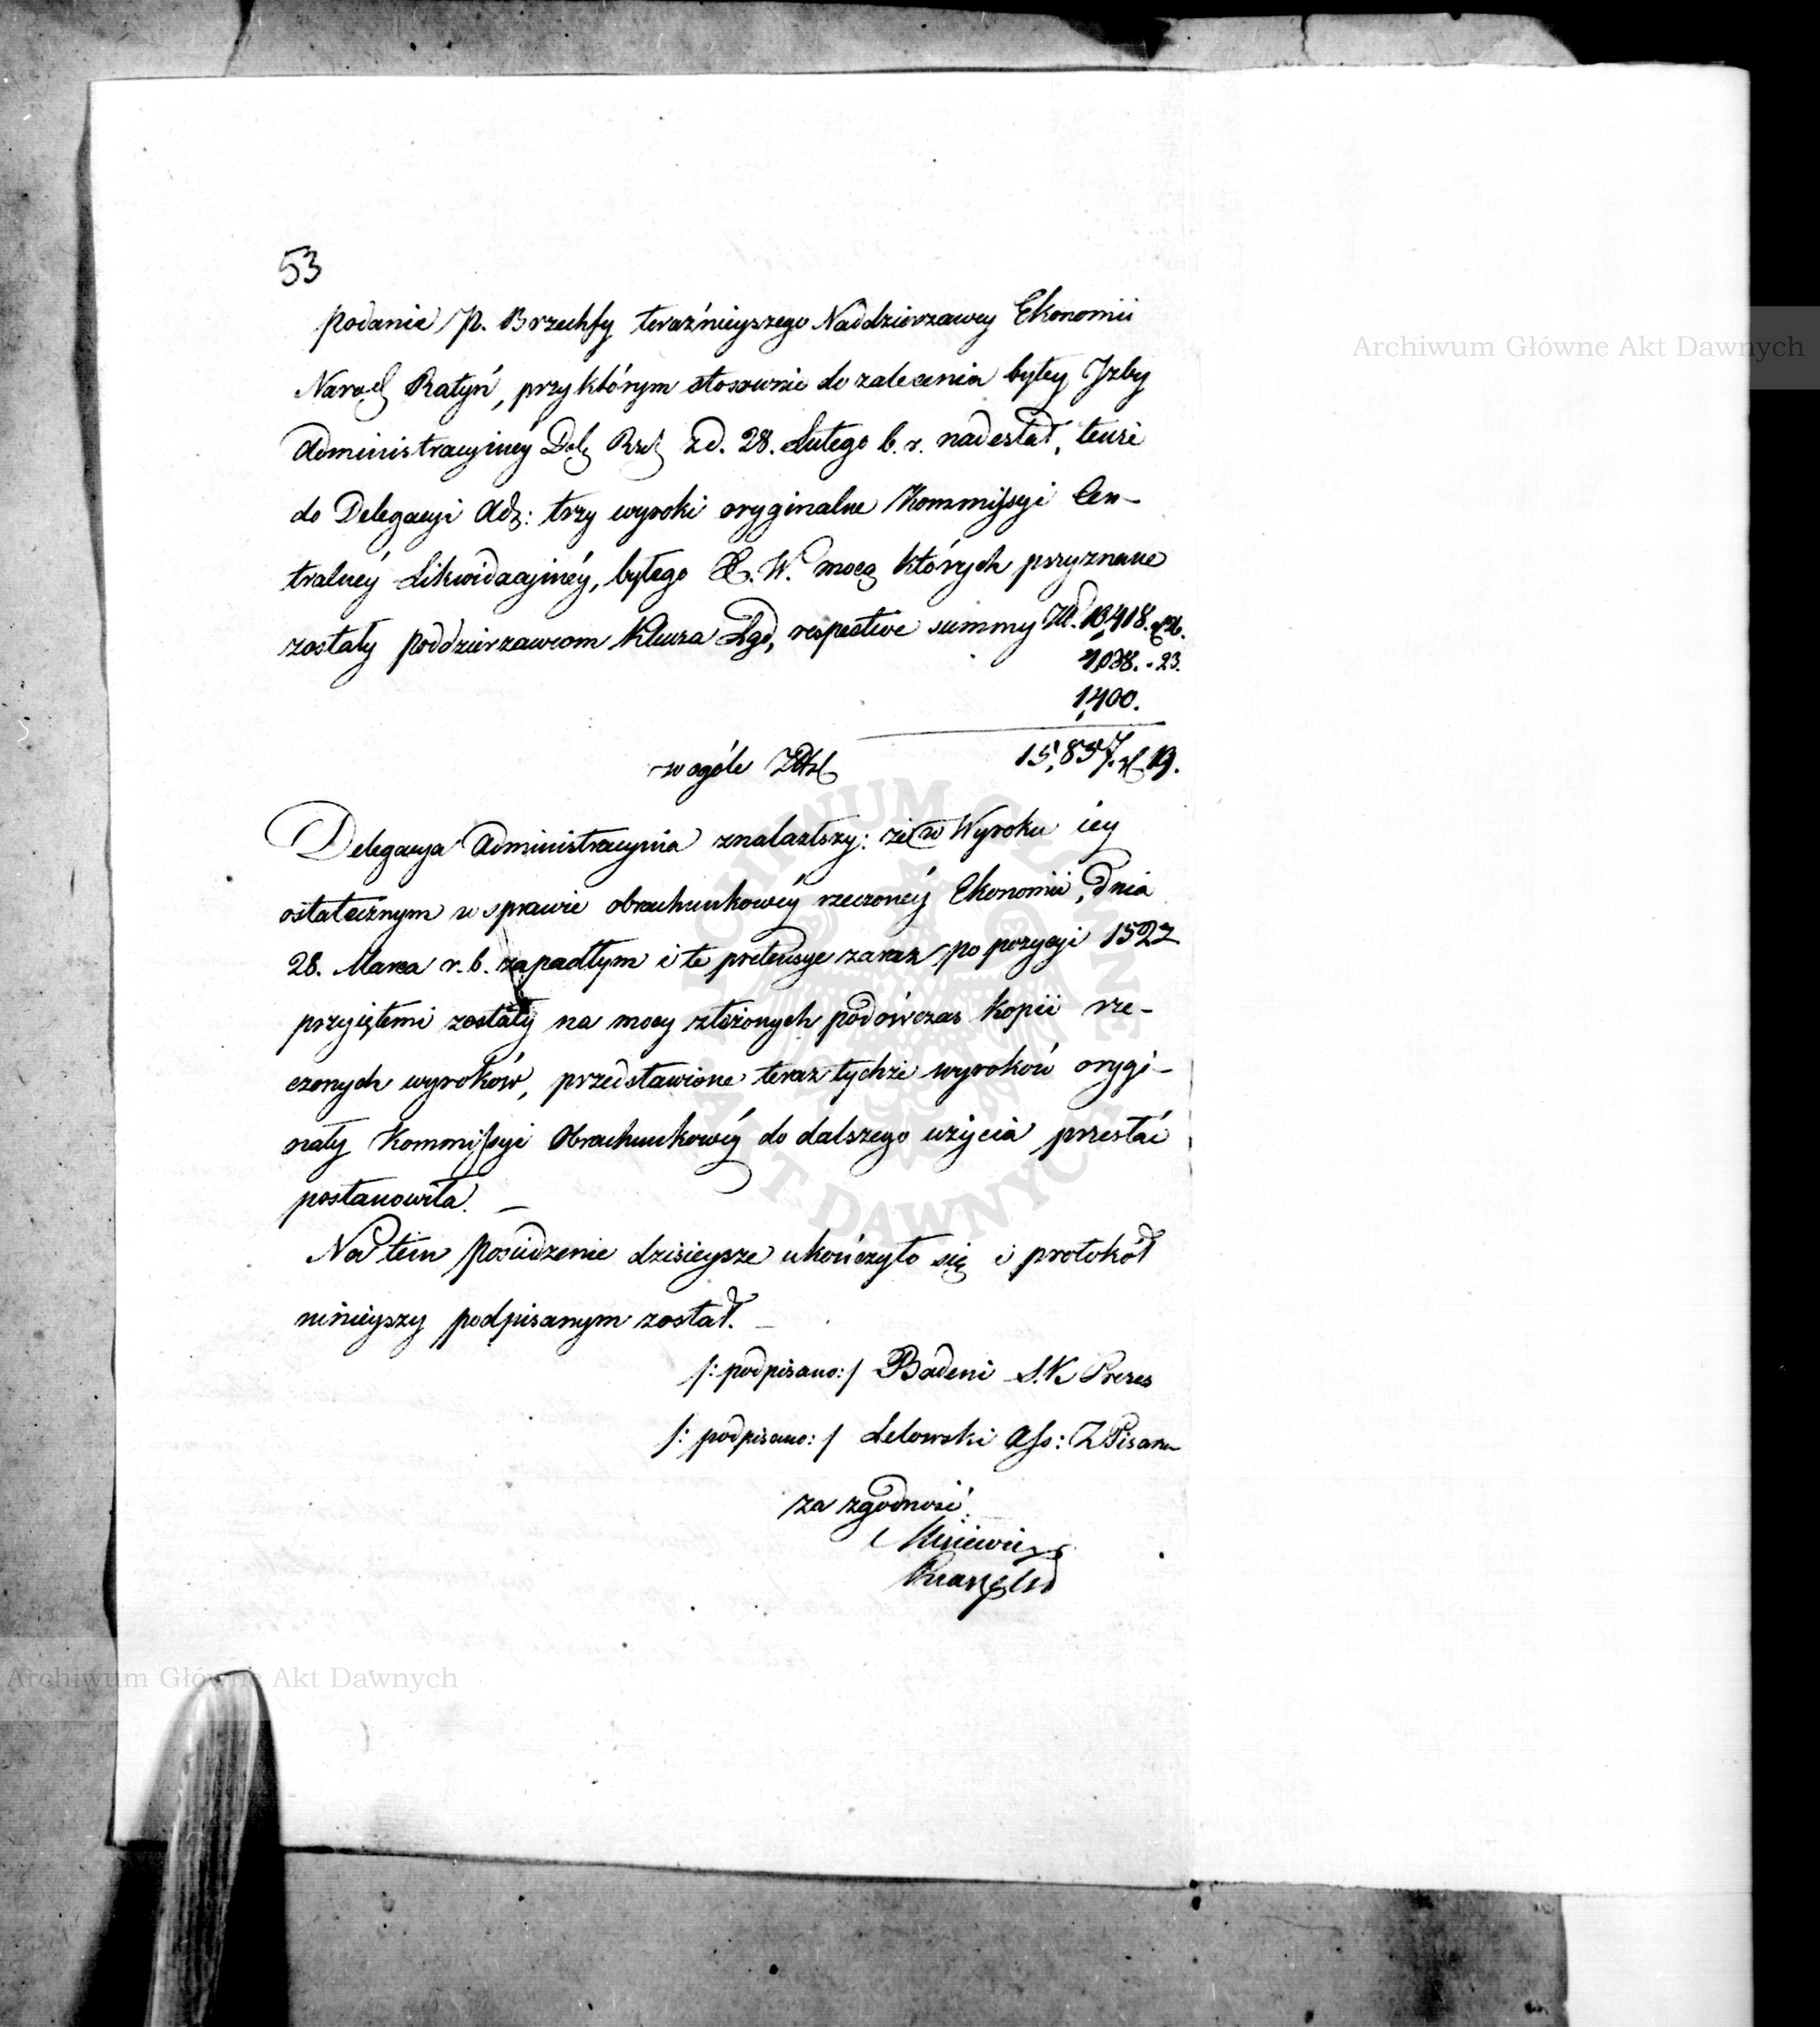 53
Podanie P. Brzechfy teraźnieyszego Naddzierzawcy Ekonomii
Narod Ratyń, przyktórym stosownie do zalecenia byłey Jzby
Administracyiney Rzd z d. 28. Lutego b. r. nadesłał, tenże
do Delegacyi Adm: trzy wyroki oryginalne Kommissyi Cen-
tralney Likwidacyiney, byłego X. W. mocą których przyznane
zostały poddzierzawcom Klucza Lgd, respective summy Zł.
1,400.
w ogóle Złtpl 15,857. 19.
Delegacya Administracyina znalazłszy: że w Wyroku iey
ostatecznym w sprawie obrachunkowéy rzeczonéy Ekonomii, dnia
28. Marca r. b. zapadłym i te pretensye zaraz po pozycyi 1522
przyiętemi zostały na mocy złożonych podówczas kopii rze-
czonych wyroków, przedstawione teraz tychże wyroków orygi-
nały Kommissyi Obrachunkowéy do dalszego użycia przesłać
postanowiła. —
Na tém posiedzenie dzisieysze ukończyło się i protokół
ninieyszy podpisanym został. —
/: podpisano: / Badeni S.K Prezes
/: podpisano: / Lelowski Ass: Z Pisarz
za zgodność
Archiwum Główne Akt Dawnych
Archiwum Główne Akt Dawnych
ARCHIWUM GŁÓWNE AKT DAWNYCH